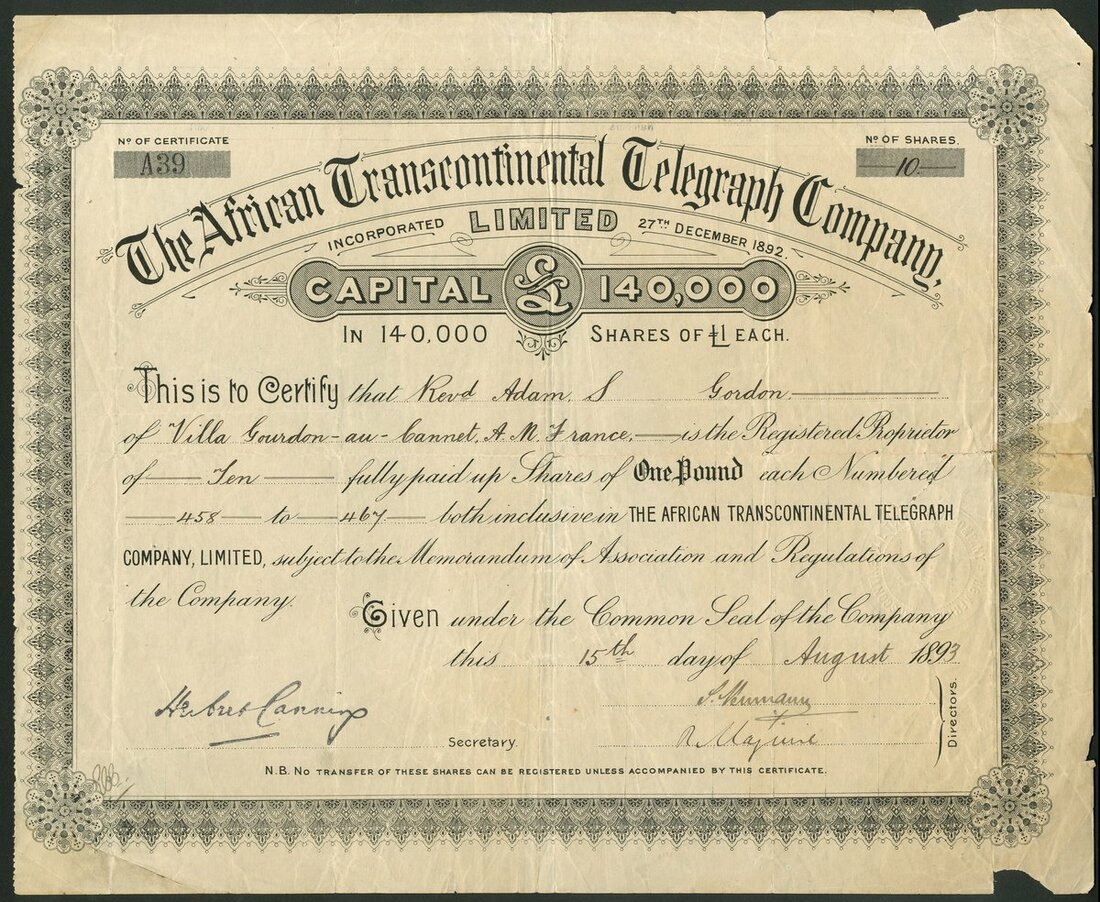 Nº OF CERTIFICATE
A39
Nº OF SHARES.
10
The African Transcontinental Telegraph Company,
INCORPORATED LIMITED 27TH DECEMBER 1892.
CAPITAL £ 140,000
IN 140,000 SHARES OF £1 EACH.
This is to Certify that Revd Adam S Gordon
of Villa Gourdon-au-Cannet, A. M. France, is the Registered Proprietor
of Ten fully paid up Shares of One Pound each Numbered
458 to 467 both inclusive in THE AFRICAN TRANSCONTINENTAL TELEGRAPH
COMPANY, LIMITED, subject to the Memorandum of Association and Regulations of
the Company.
Given under the Common Seal of the Company
this 15th day of August 1893
Herbert Canning
Secretary.
S. Neumann
R Maguire
Directors.
N.B. NO TRANSFER OF THESE SHARES CAN BE REGISTERED UNLESS ACCOMPANIED BY THIS CERTIFICATE.